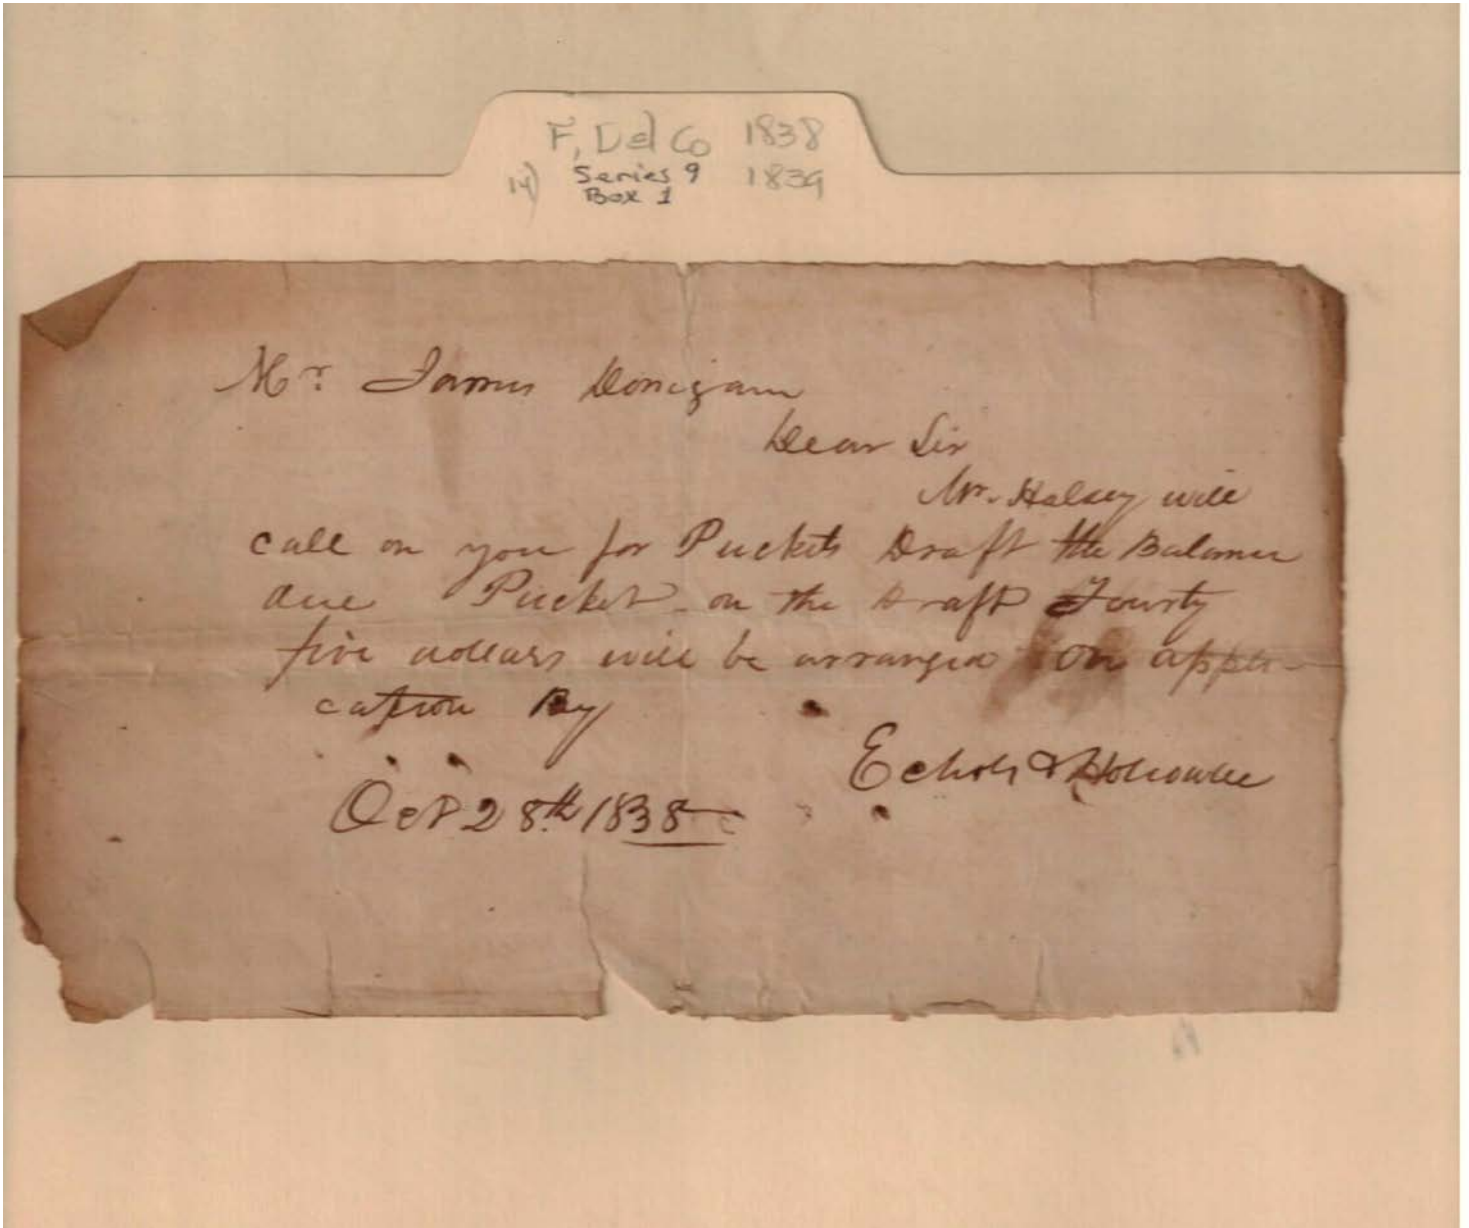 F, Del Co 1838
14) Series 9 1839
Box 1
Mr. James Donigan
Dear Sir
Mr. Halsey will
call on you for Puckets Draft the Balance
due Pucket on the draft Fourty
five dollars will be arranged on appli-
cation By
Echols & Holcombe
Oct 28th 1838